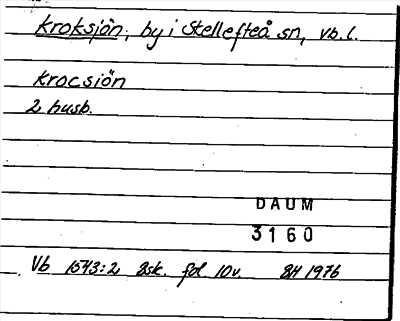 Kroksjön, by i Skellefteå sn, Vb. l.
Krocsiön
2 husb.
DAUM
3160
Vb 1543:2 Ssk. fol 10v. BH 1976